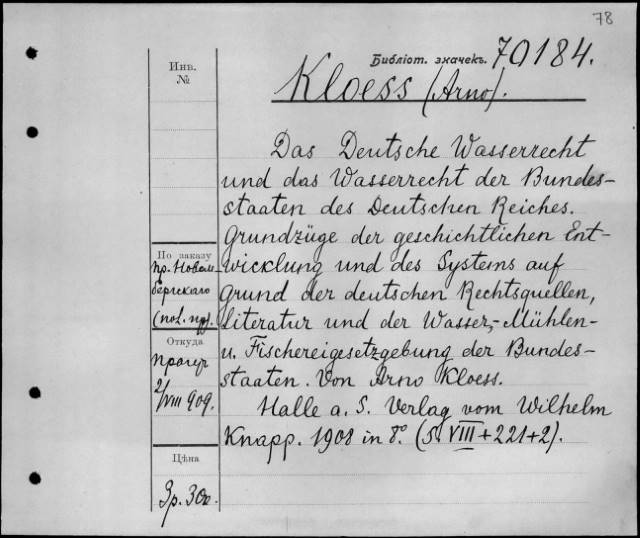 78
Библіот. значекъ. 70184.
Kloess (Arno).
Инв.
№
Das Deutsche Wasserrecht
und das Wasserrecht der Bundes-
staaten des Deutschen Reiches.
Grundzüge der geschichtlichen Ent-
wicklung und des Systems auf
Grund der deutschen Rechtsquellen,
Literatur und der Wasser,-Mühlen-
u. Fischereigesetzgebung der Bundes-
staaten. Von Arno Kloess.
Halle a. S. Verlag vom Wilhelm
Knapp. 1908 in 8.° (S. VIII+221+2).
По заказу
пр. Новом-
бергскаго
Откуда
2/VIII 909.
Цѣна
3р. 30к.